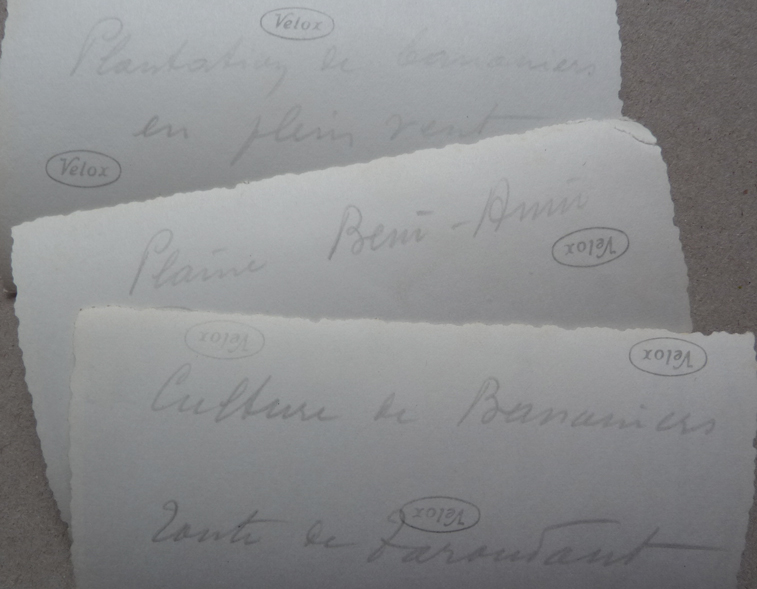 Velox
Plantation de bananiers
en plein vent
Velox
Plaine Beni-Amir
Velox
Velox
Velox
Culture de Bananiers
Velox
route de Taroudant